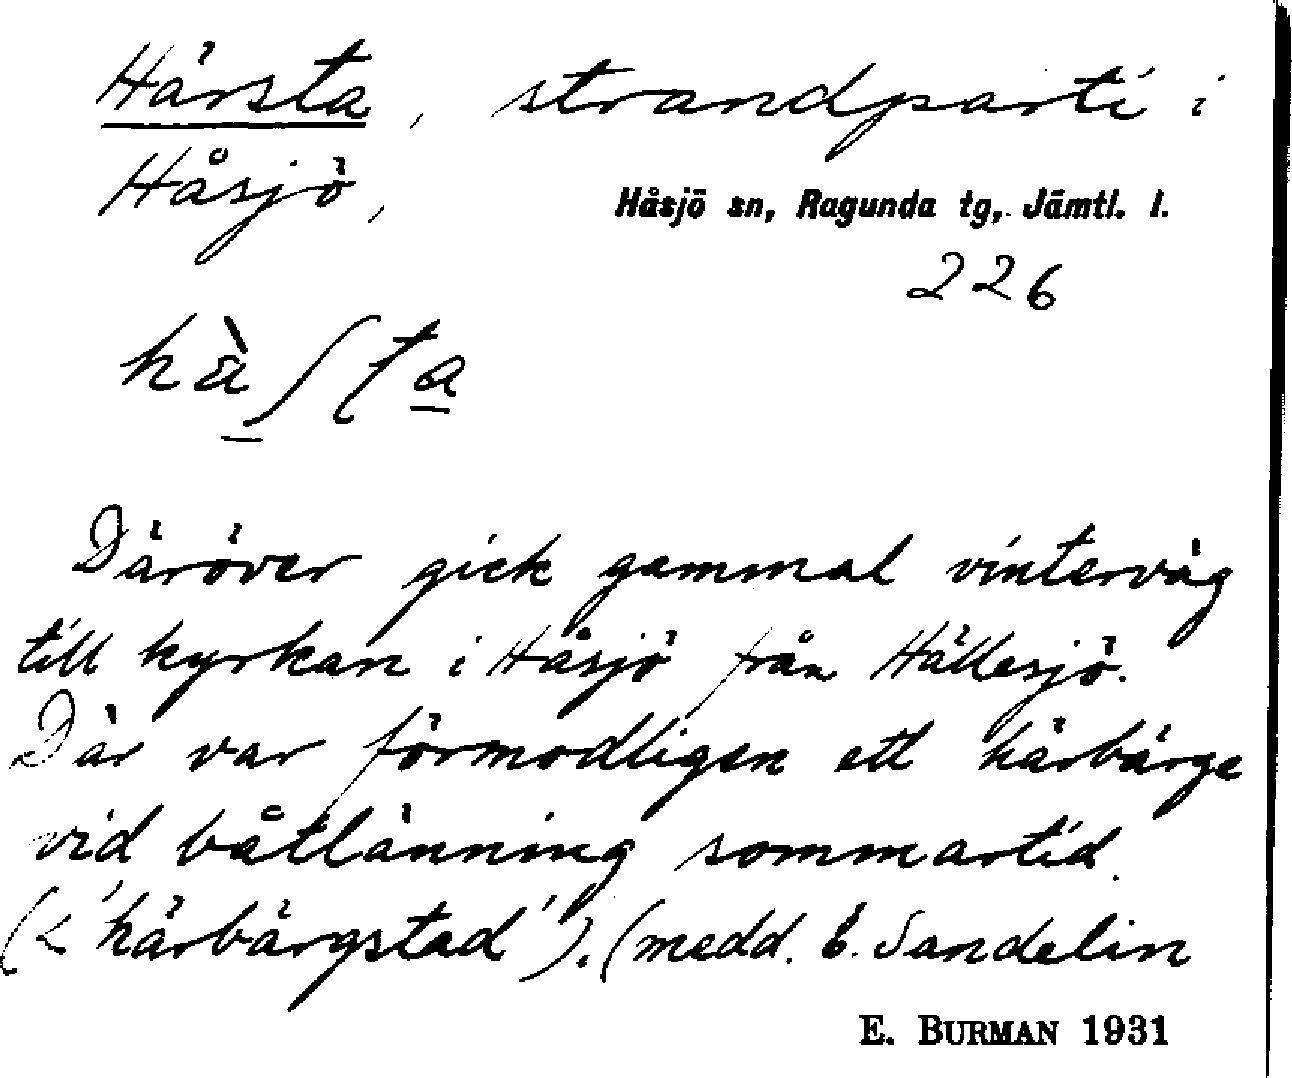 Härsta, strandparti i
Håsjö,
Håsjö sn, Ragunda tg, Jämtl. l.
226
Däröver gick gammal vinterväg
till kyrkan i Håsjö från Hällesjö.
Där var förmodligen ett härbärge
vid båtlänning sommartid.
(< 'härbärgstad'). (medd. E. Sandelin
E. BURMAN 1931